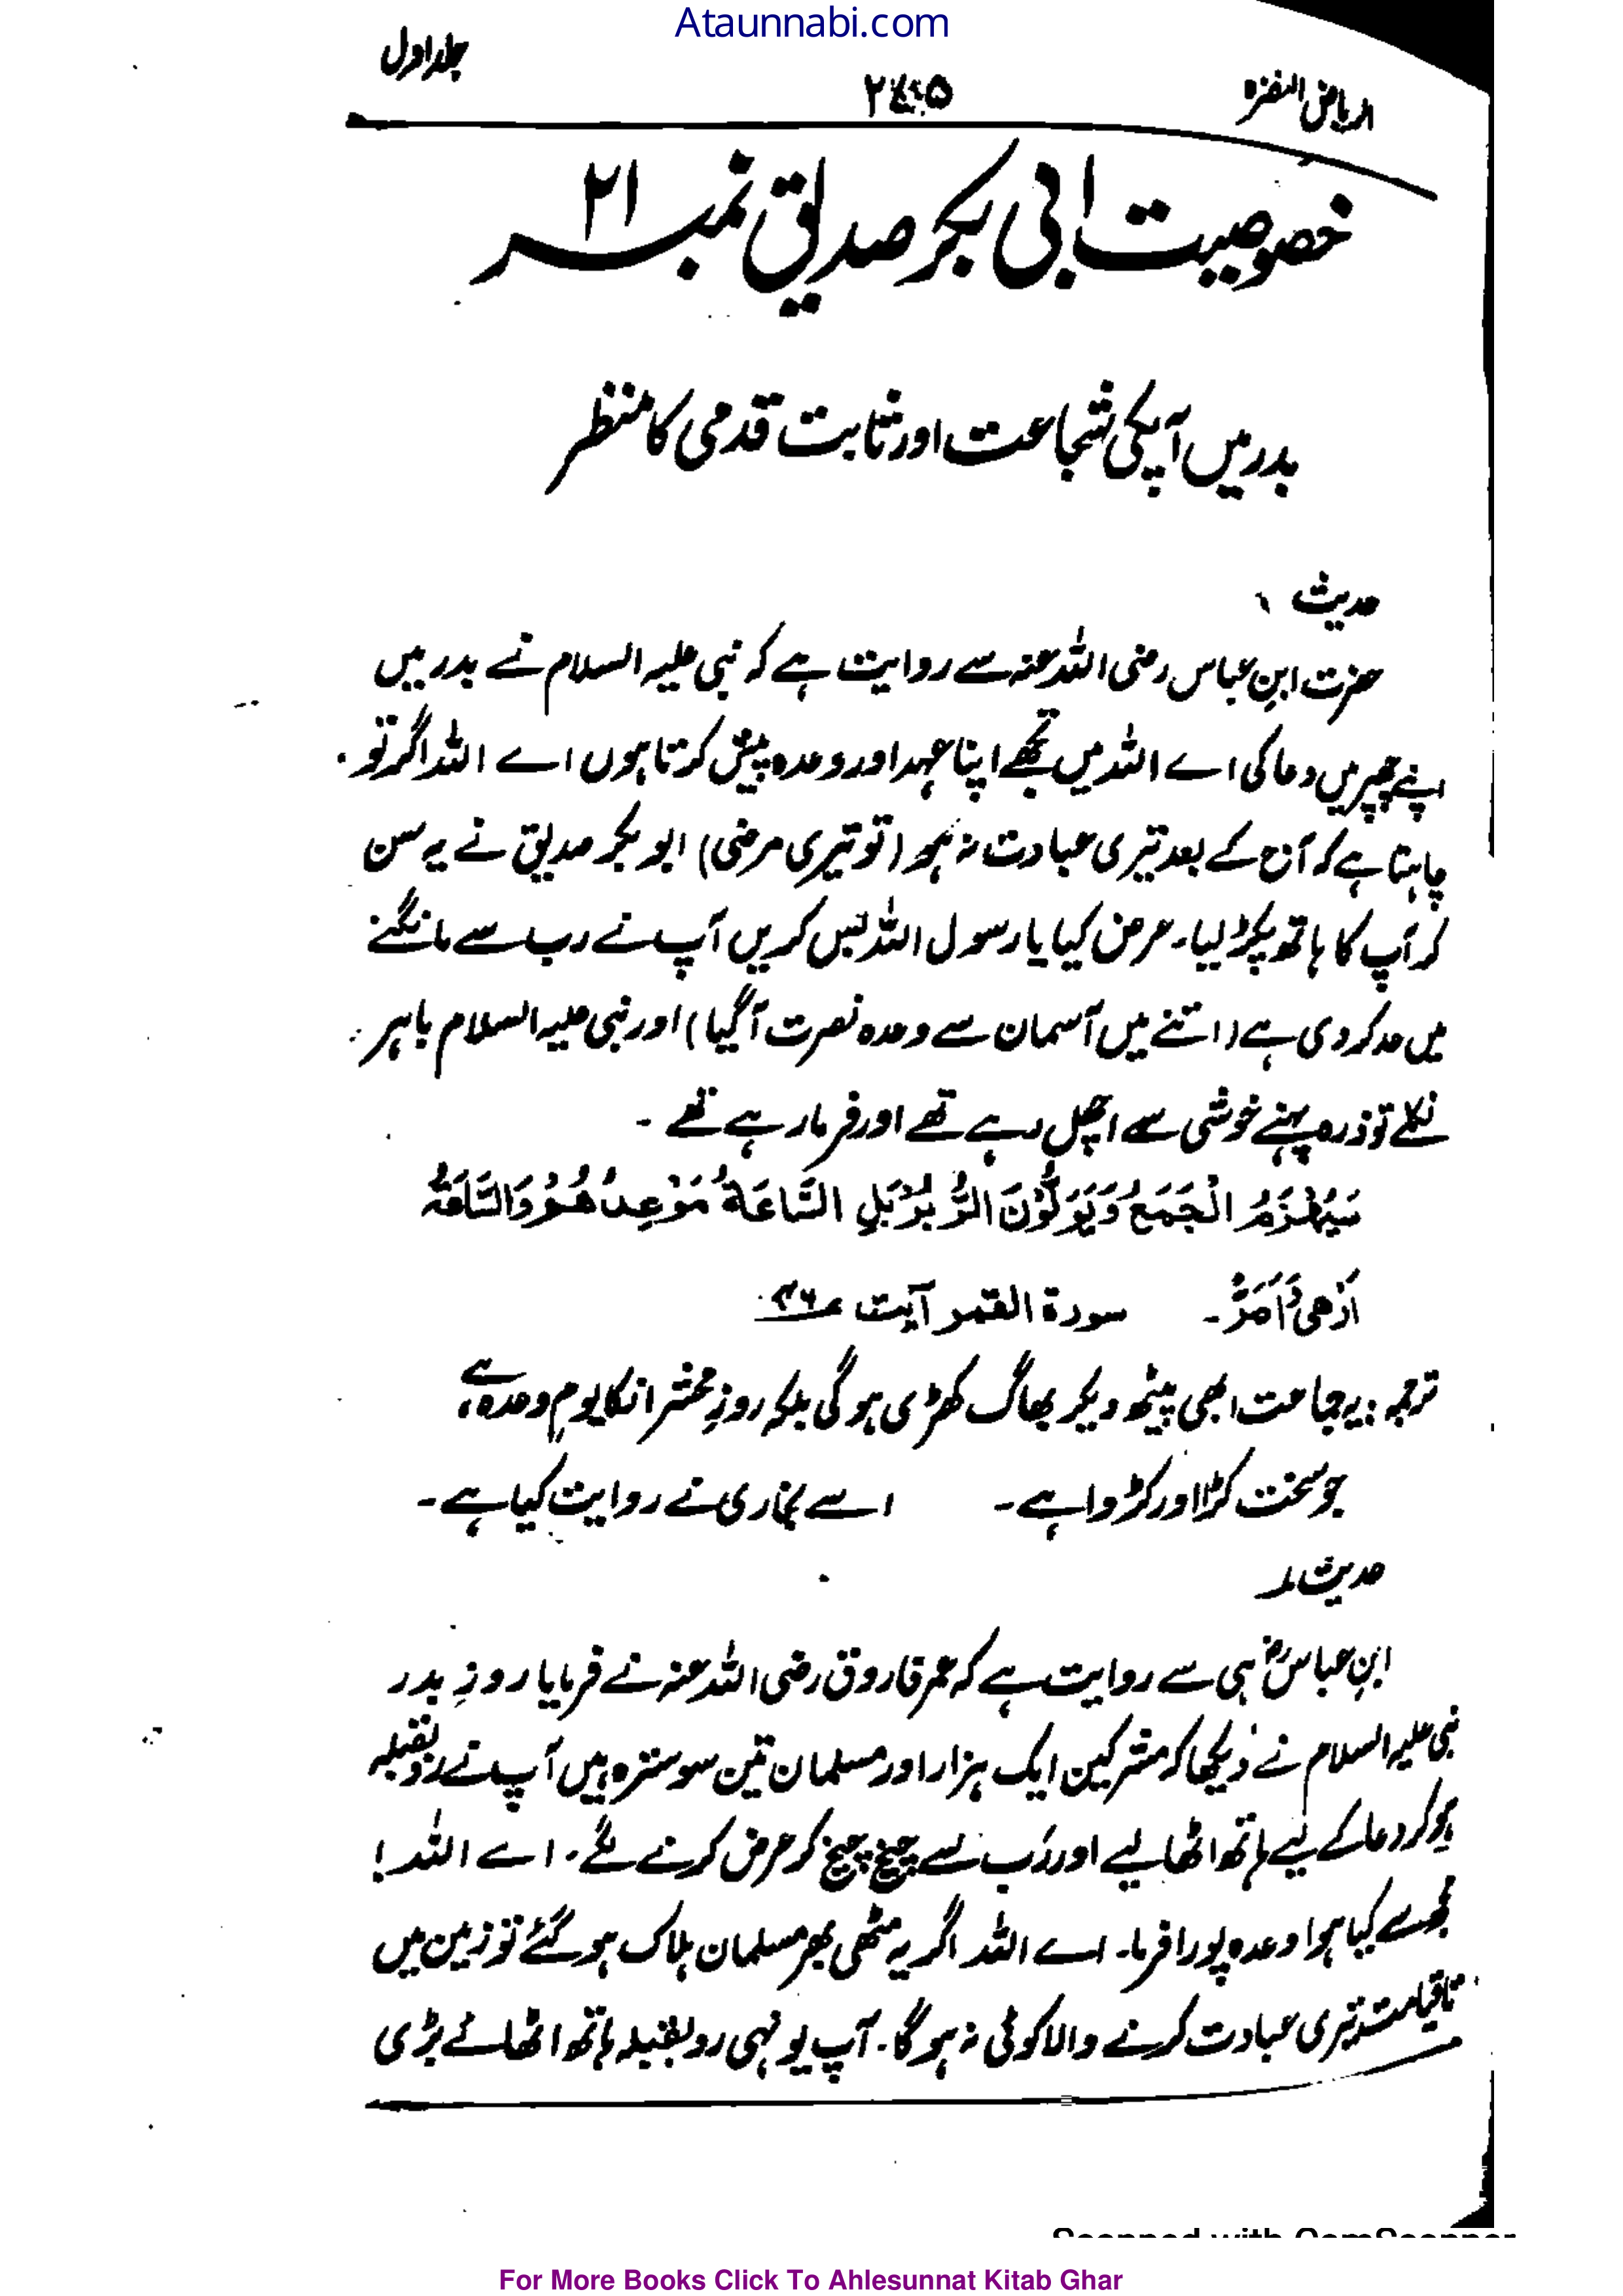 Ataunnabi.com
الریاض النضرہ
جلد اول
خصوصیت ابی بکر صدیق نمبر ۲۱
بدر میں آپکی شجاعت اور ثابت قدمی کا منظر
حدیث ۱
حضرت ابنِ عباس رضی اللہ عنہ سے روایت ہے کہ نبی علیہ السلام نے بدر میں
اپنے چھپر میں دعا کی اے اللہ میں تجھے اپنا عہد اور وعدہ پیش کرتا ہوں اے اللہ اگر تو
چاہتا ہے کہ آج کے بعد تیری عبادت نہ ہو (تو تیری مرضی) ابو بکر صدیق نے یہ سن
کر آپ کا ہاتھ پکڑ لیا۔ عرض کیا یا رسول اللہ بس کریں آپ نے رب سے مانگنے
میں حد کر دی ہے (اتنے میں آسمان سے وعدہ نصرت آگیا) اور نبی علیہ السلام باہر
نکلے تو ذرہ پہنے خوشی سے اچھل رہے تھے اور فرما رہے تھے ۔
سَیُهْزَمُ الْجَمَعُ وَیَوَلُّوْنَ الدُّبُرْ بَلِ السَّاعَةُ مَوْعِدُهُمْ وَالسَّاعَةُ
اَدْهیٰ وَاَمَرُّ۔ سورۃ القمر آیت ۴۶
ترجمہ: یہ جماعت ابھی پیٹھ دیکر بھاگ کھڑی ہو گی بلکہ روزِ محشر انکا یومِ وعدہ ہے،
جو سخت کڑا اور کڑوا ہے۔ اسے بخاری نے روایت کیا ہے۔
حدیث
ابنِ عباسؓ ہی سے روایت ہے کہ عمر فاروق رضی اللہ عنہ نے فرمایا روزِ بدر
نبی علیہ السلام نے دیکھا کہ مشرکین ایک ہزار اور مسلمان تین سو سترہ ہیں آپ نے رو بقبلہ
ہو کر دعا کے لیے ہاتھ اٹھا لیے اور رب سے چیخ چیخ کر عرض کرنے لگے۔ اے اللہ!
مجھ سے کیا ہوا وعدہ پورا فرما۔ اے اللہ اگر یہ مٹھی بھر مسلمان ہلاک ہو گئے تو زمین میں
تاقیامت تیری عبادت کرنے والا کوئی نہ ہو گا۔ آپ یونہی رو بقبلہ ہاتھ اٹھائے بڑی
Scanned with CamScanner
For More Books Click To Ahlesunnat Kitab Ghar